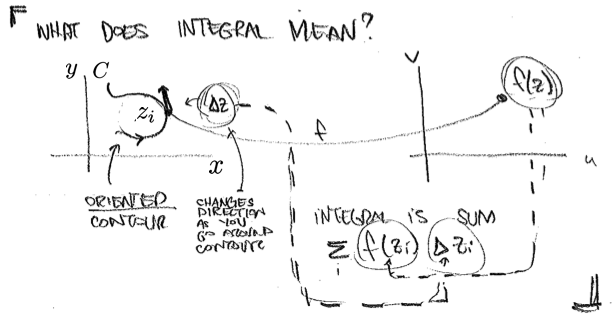 WHAT DOES INTEGRAL MEAN?
y C
z_i
Δz
x
f
v
f(z)
u
ORIENTED
CONTOUR
CHANGES
DIRECTION
AS YOU
GO AROUND
CONTOUR
INTEGRAL IS SUM
Σ_i f(z_i) Δz_i